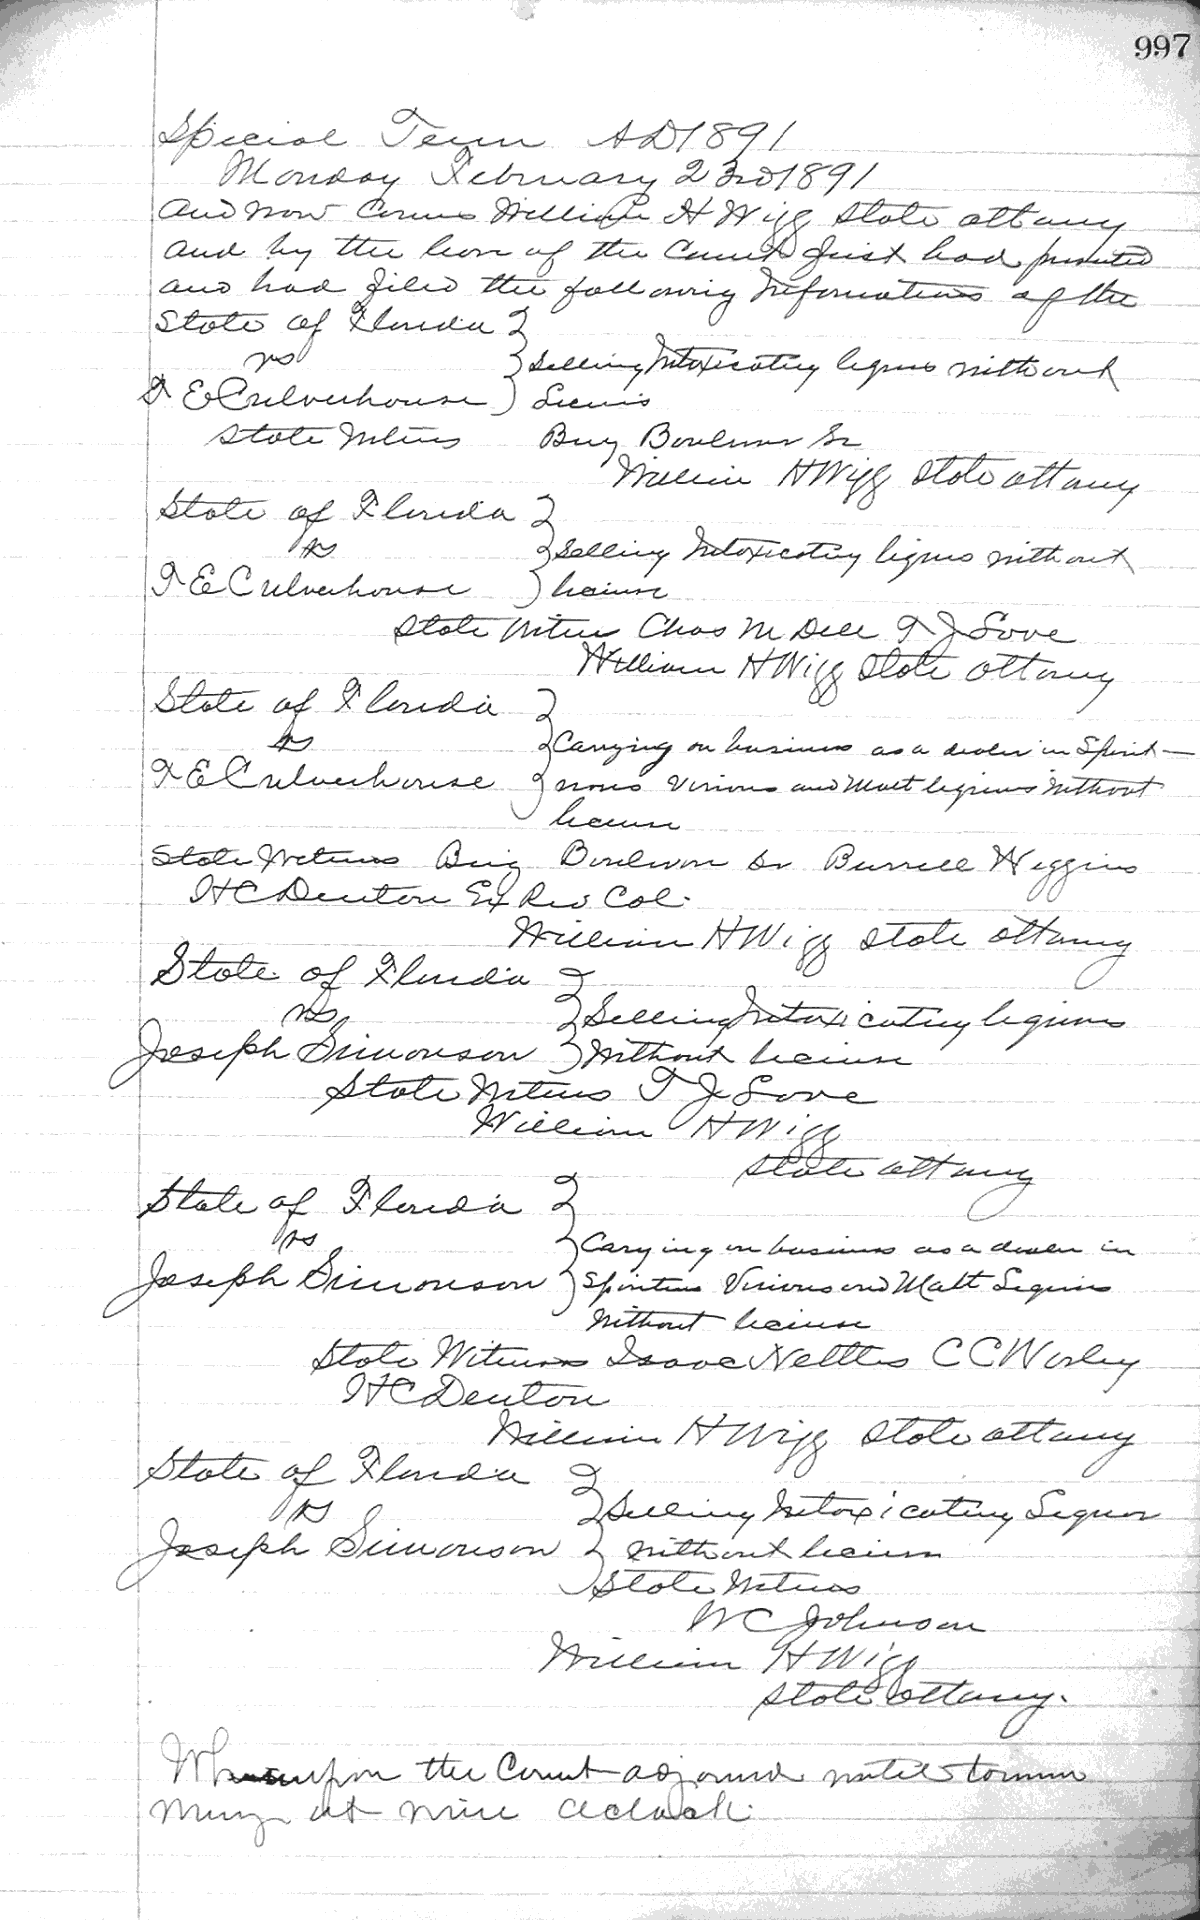 997
Special Term AD 1891
Monday February 23rd 1891
And now comes William H Wigg State attorny
and by the leave of the Court first had presented
and had filed the following Informations of the
State of Florida
vs Selling Intoxicating liquors without
T E Culverhouse License
State Witness Benj Boulwar Sr
William H Wigg State attorny
State of Florida
vs Selling Intoxicating liqurs without
T E Culverhouse license
State Witness Chas McDell T J Love
William H Wigg State attorny
State of Florida
vs Carrying on business as a dealer in Spirit-
T E Culverhouse uous Vinious and Malt liquors without
license
State Witness Benj Boulwar Sr Burrell Higgins
H C Denton Ex Rev Col.
William H Wigg State attorny
State of Florida
vs Selling Intoxicating liquors
Joseph Simonson Without license
State Witness T J Love
William H Wigg
State attorny
State of Florida
vs Carrying on business as a dealer in
Joseph Simonson Spiritus Vinious and Malt Liquors
Without license
State Witness Isaac Nettles C C Worley
H C Denton
William H Wigg State attorny
State of Florida
vs Selling Intoxicating Liquor
Joseph Simonson without license
State Witness
W C Johnson
William H Wigg
State attorny.
Whereupon the Court adjourned until tomorrow
morning at nine oclock.